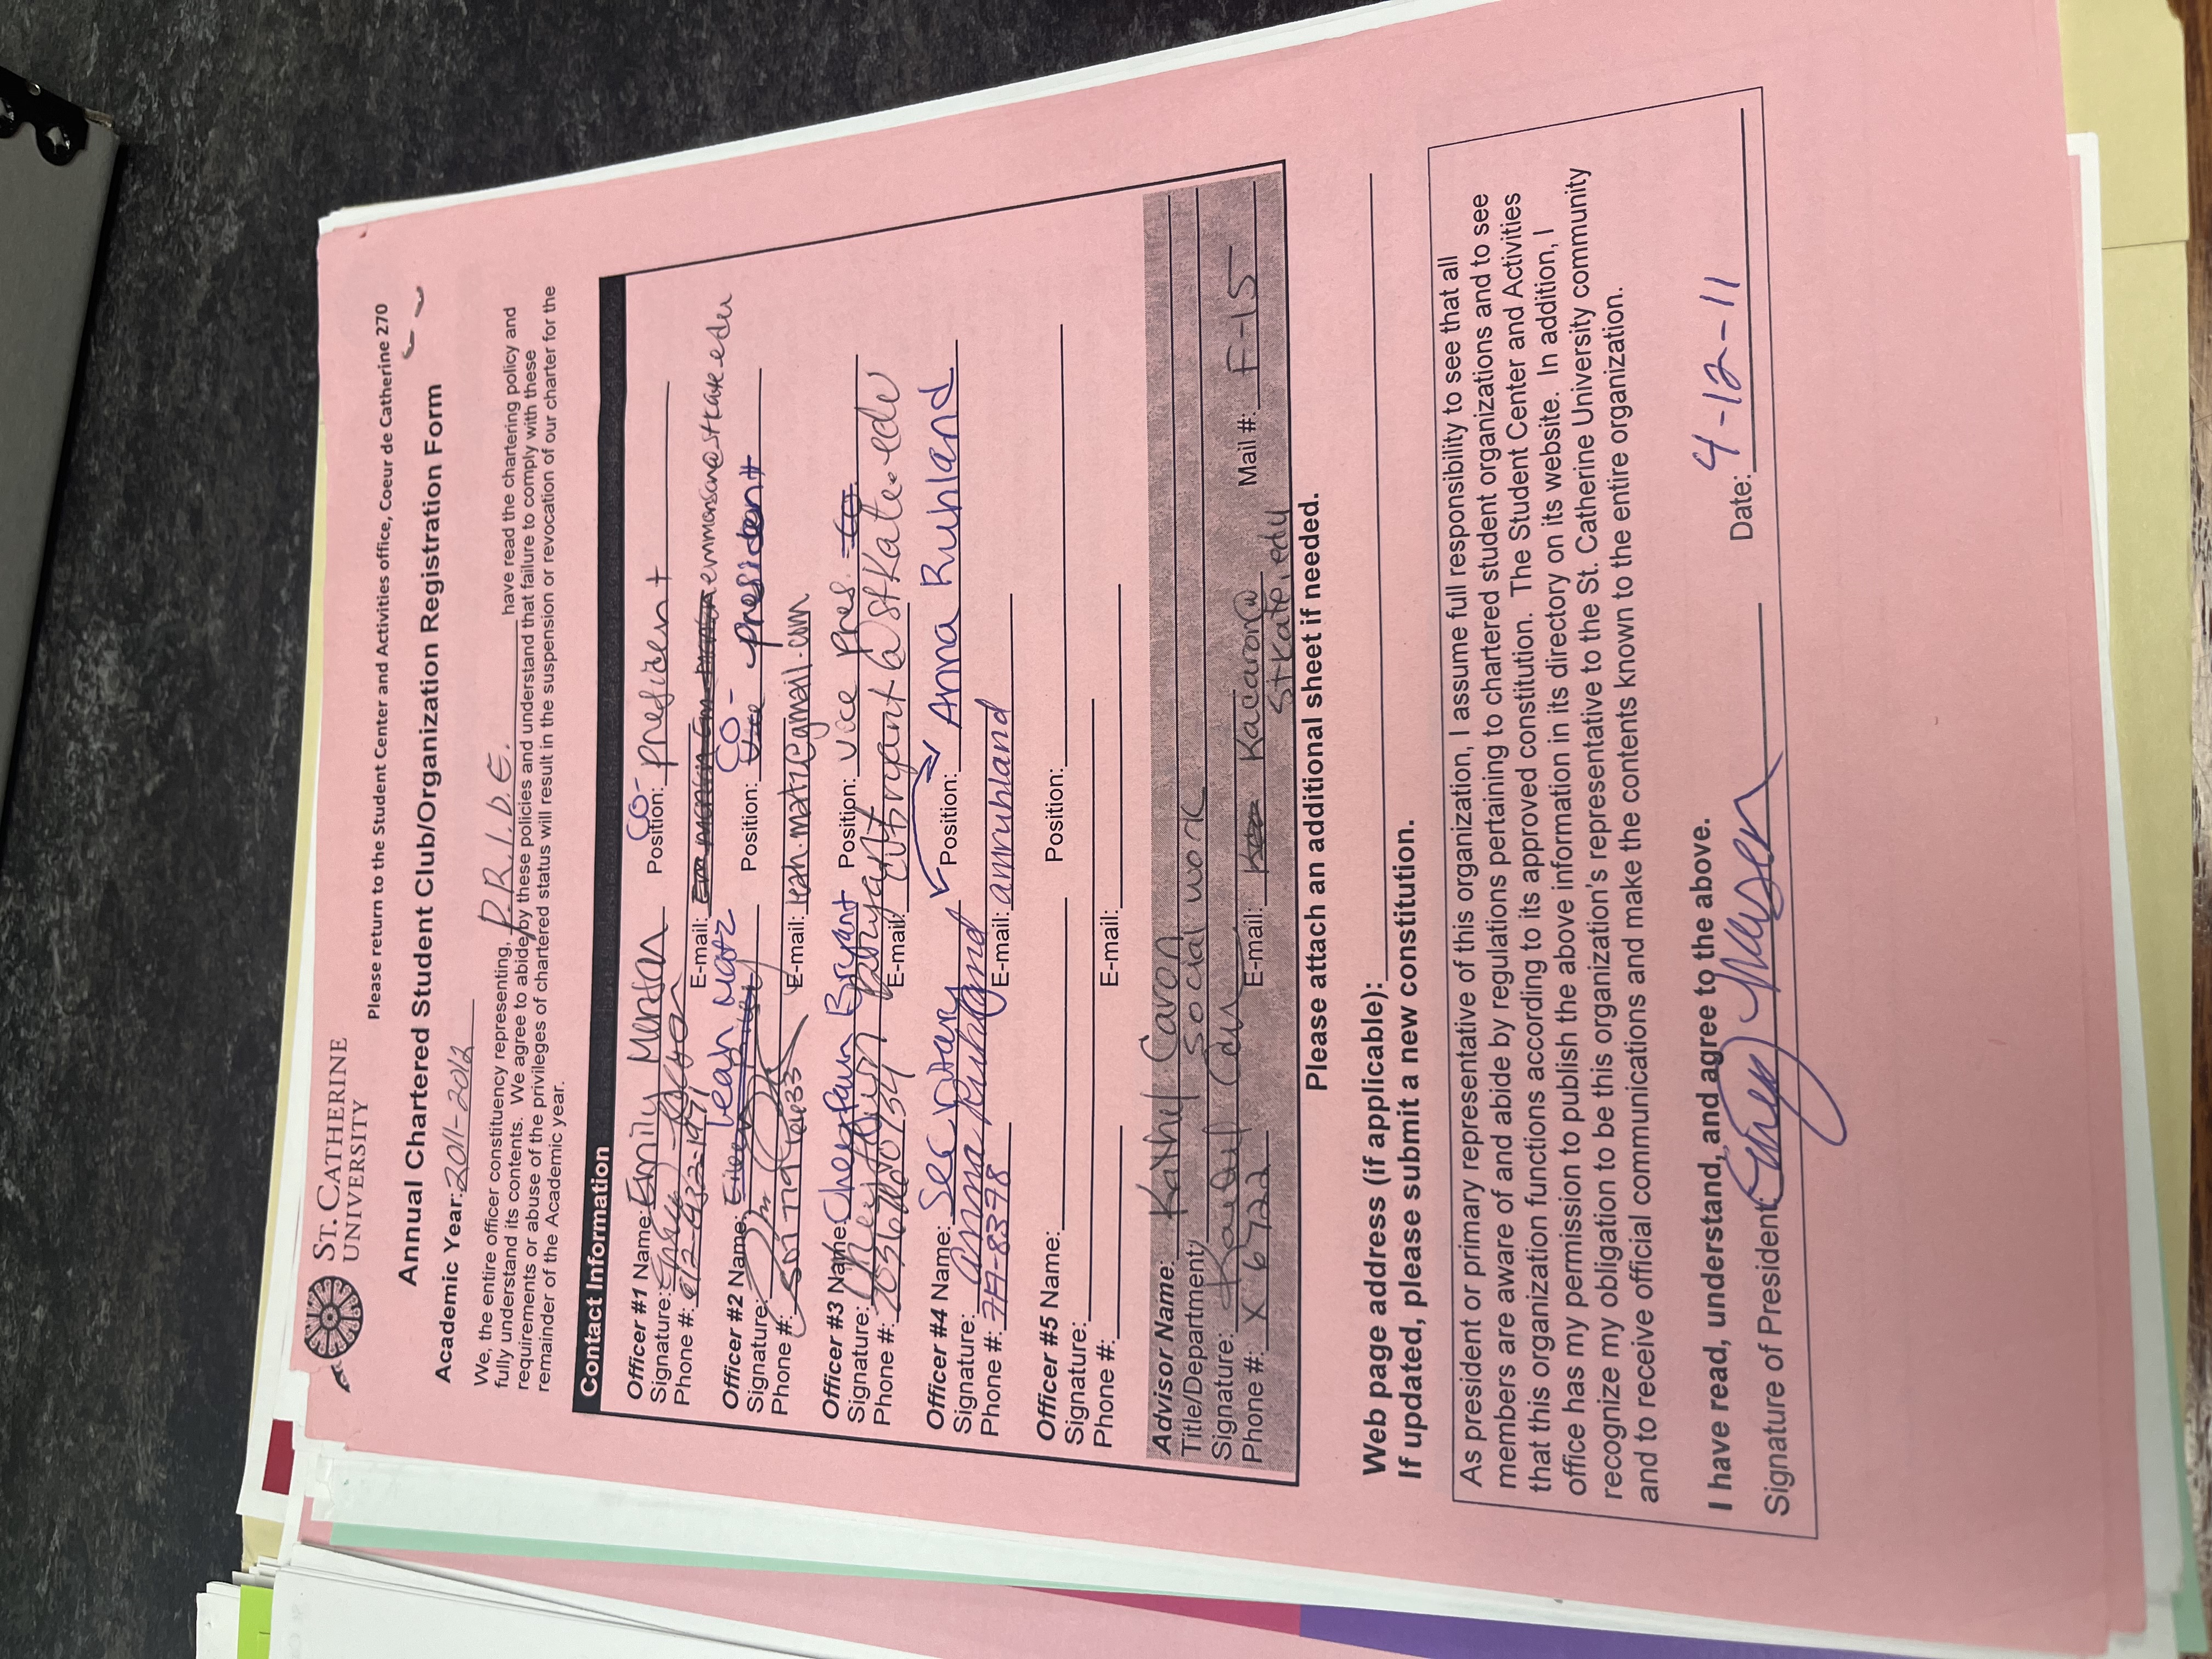 ST. CATHERINE
UNIVERSITY
Please return to the Student Center and Activities office, Coeur de Catherine 270
Annual Chartered Student Club/Organization Registration Form
Academic Year: 2011-2012
We, the entire officer constituency representing, P.R.I.D.E. have read the chartering policy and
fully understand its contents. We agree to abide by these policies and understand that failure to comply with these
requirements or abuse of the privileges of chartered status will result in the suspension or revocation of our charter for the
remainder of the Academic year.
Contact Information
Officer #1 Name: Emily Monson Position: CO-president
Signature:
Phone #: 612-432-1971 E-mail: emmonson@stkate.edu
Officer #2 Name: Leah Matz Position: CO-president
Signature:
Phone #: 507 779 E-mail: leah.matz@gmail.com
Officer #3 Name: Bryant Position: Vice pres.
Signature: Bryant
Phone #: E-mail: @stkate.edu
Officer #4 Name: Secretary Position: Anna Ruhland
Signature: Anna Ruhland
Phone #: 719-8378 E-mail: amruhland
Officer #5 Name: Position:
Signature:
Phone #: E-mail:
Advisor Name: Caron
Title/Department: social work
Signature:
Phone #: X 6722 E-mail: Kacaron@ Mail #: F-15
stkate.edu
Please attach an additional sheet if needed.
Web page address (if applicable):
If updated, please submit a new constitution.
As president or primary representative of this organization, I assume full responsibility to see that all
members are aware of and abide by regulations pertaining to chartered student organizations and to see
that this organization functions according to its approved constitution. The Student Center and Activities
office has my permission to publish the above information in its directory on its website. In addition, I
recognize my obligation to be this organization's representative to the St. Catherine University community
and to receive official communications and make the contents known to the entire organization.
I have read, understand, and agree to the above.
Signature of President: Date: 4-12-11